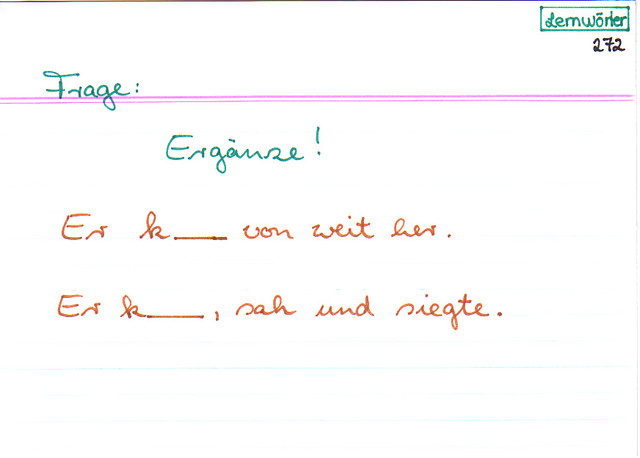 Lernwörter
272
Frage:
Ergänze!
Er k___ von weit her.
Er k___, sah und siegte.